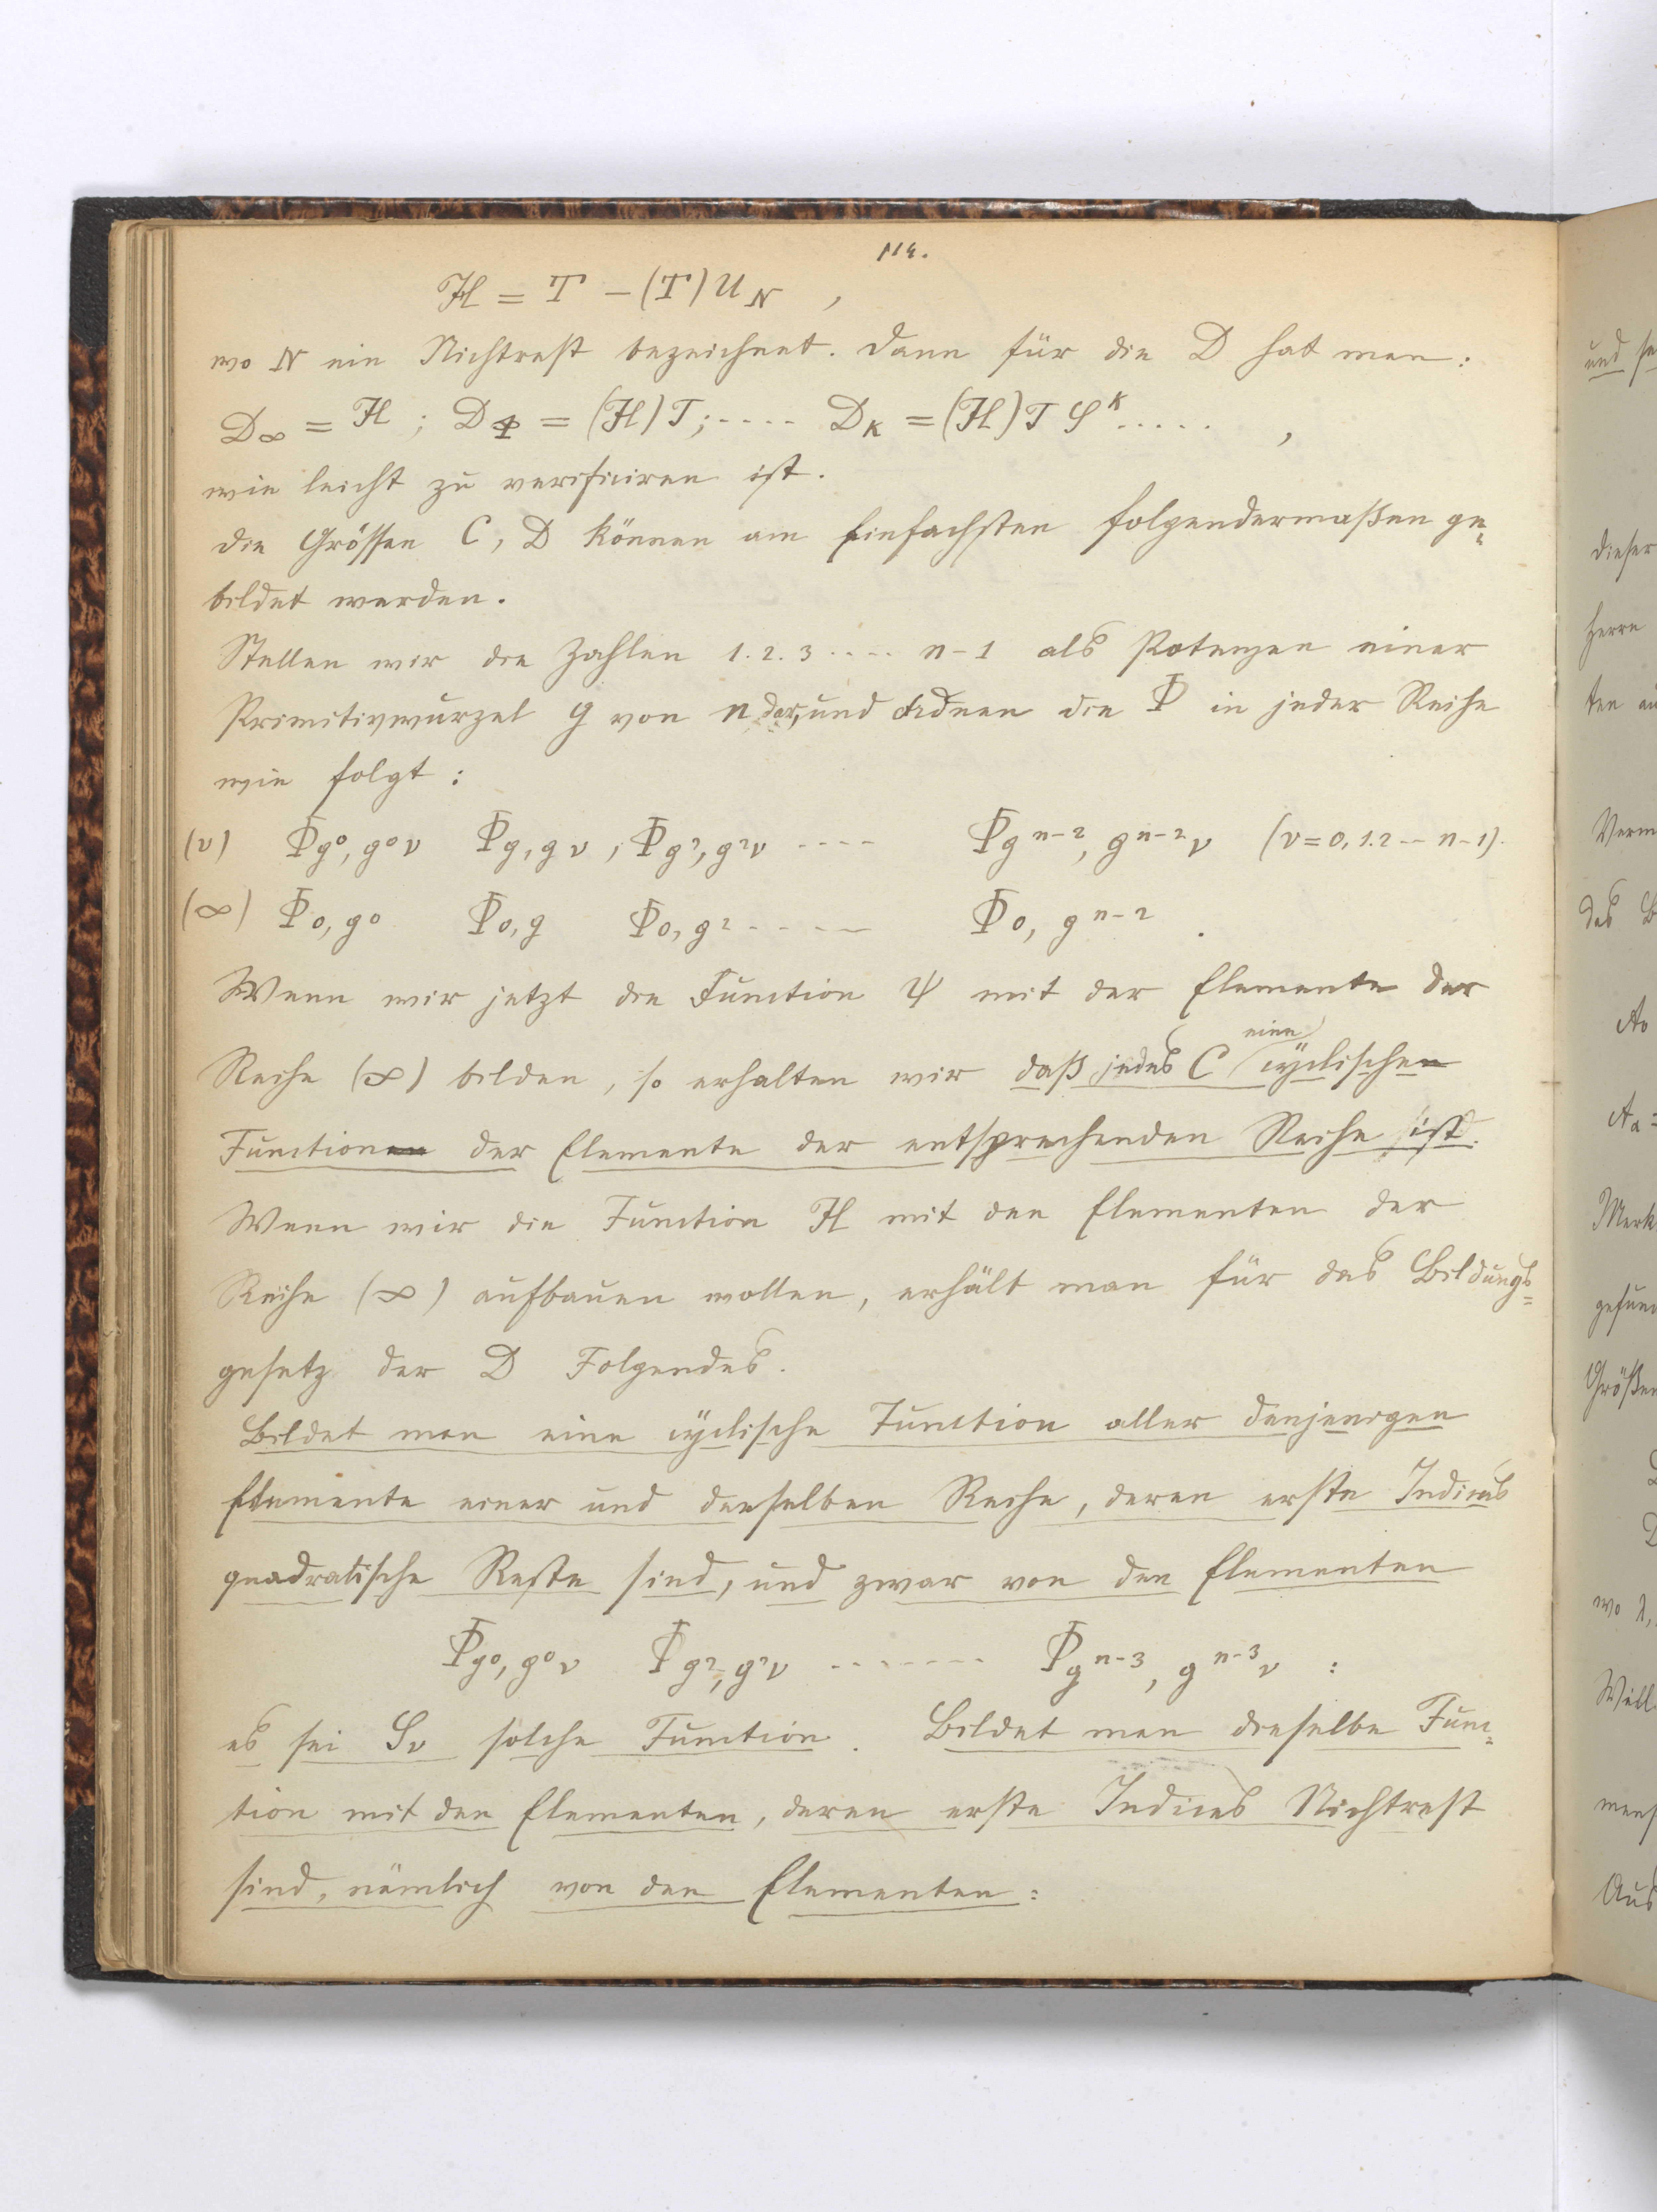 114.
H = T – (T) U_N ,
wo N ein Nichtrest bezeichnet. Dann für die D hat man:
D_∞ = H ; D = (H) T ; ---- D_K = (H) T S^K ..... ,
wie leicht zu verificiren ist.
Die Grössen C, D können am Einfachsten folgendermaßen ge=
bildet werden.
Stellen wir die Zahlen 1. 2. 3 ---- n-1 als Potenzen einer
Primitivwurzel g von n dar, und ordnen die Φ in jeder Reihe
wie folgt :
(ν) Φ_{g^0, g^0ν} Φ_{g, gν} , Φ_{g^2, g^2ν} ---- Φ_{g^{n-2}, g^{n-2}ν} (ν = 0, 1. 2 -- n-1).
(∞) Φ_{0, g^0} Φ_{0, g} Φ_{0, g^2} ----- Φ_{0, g^{n-2}} .
Wenn wir jetzt die Function Ψ mit der Elemente der
Reihe (∞) bilden, so erhalten wir daß jedes C eine cyclische
Function der Elemente der entsprechenden Reihe ist.
Wenn wir die Function H mit den Elementen der
Reihe (∞) aufbauen wollen, erhält man für das Bildungs=
gesetz der D Folgendes.
Bildet man eine cyclische Function aller denjenigen
Elemente einer und derselben Reihe, deren erste Indices
quadratische Reste sind, und zwar von den Elementen
Φ_{g^0, g^0ν} Φ_{g^2, g^2ν} ------- Φ_{g^{n-3}, g^{n-3}ν} :
es sei S_ν solche Function. Bildet man dieselbe Func=
tion mit den Elementen, deren erste Indices Nichtrest
sind, nämlich von den Elementen :